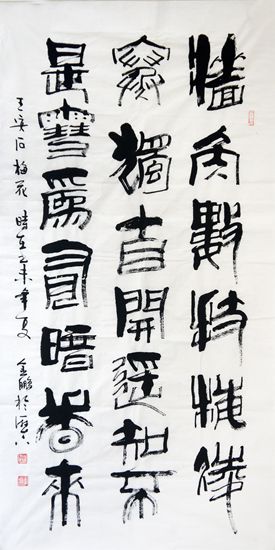 牆角數枝梅凌
寒獨自開遥知不
是雪為有暗香来
王安石 梅花 時在乙未年夏
於